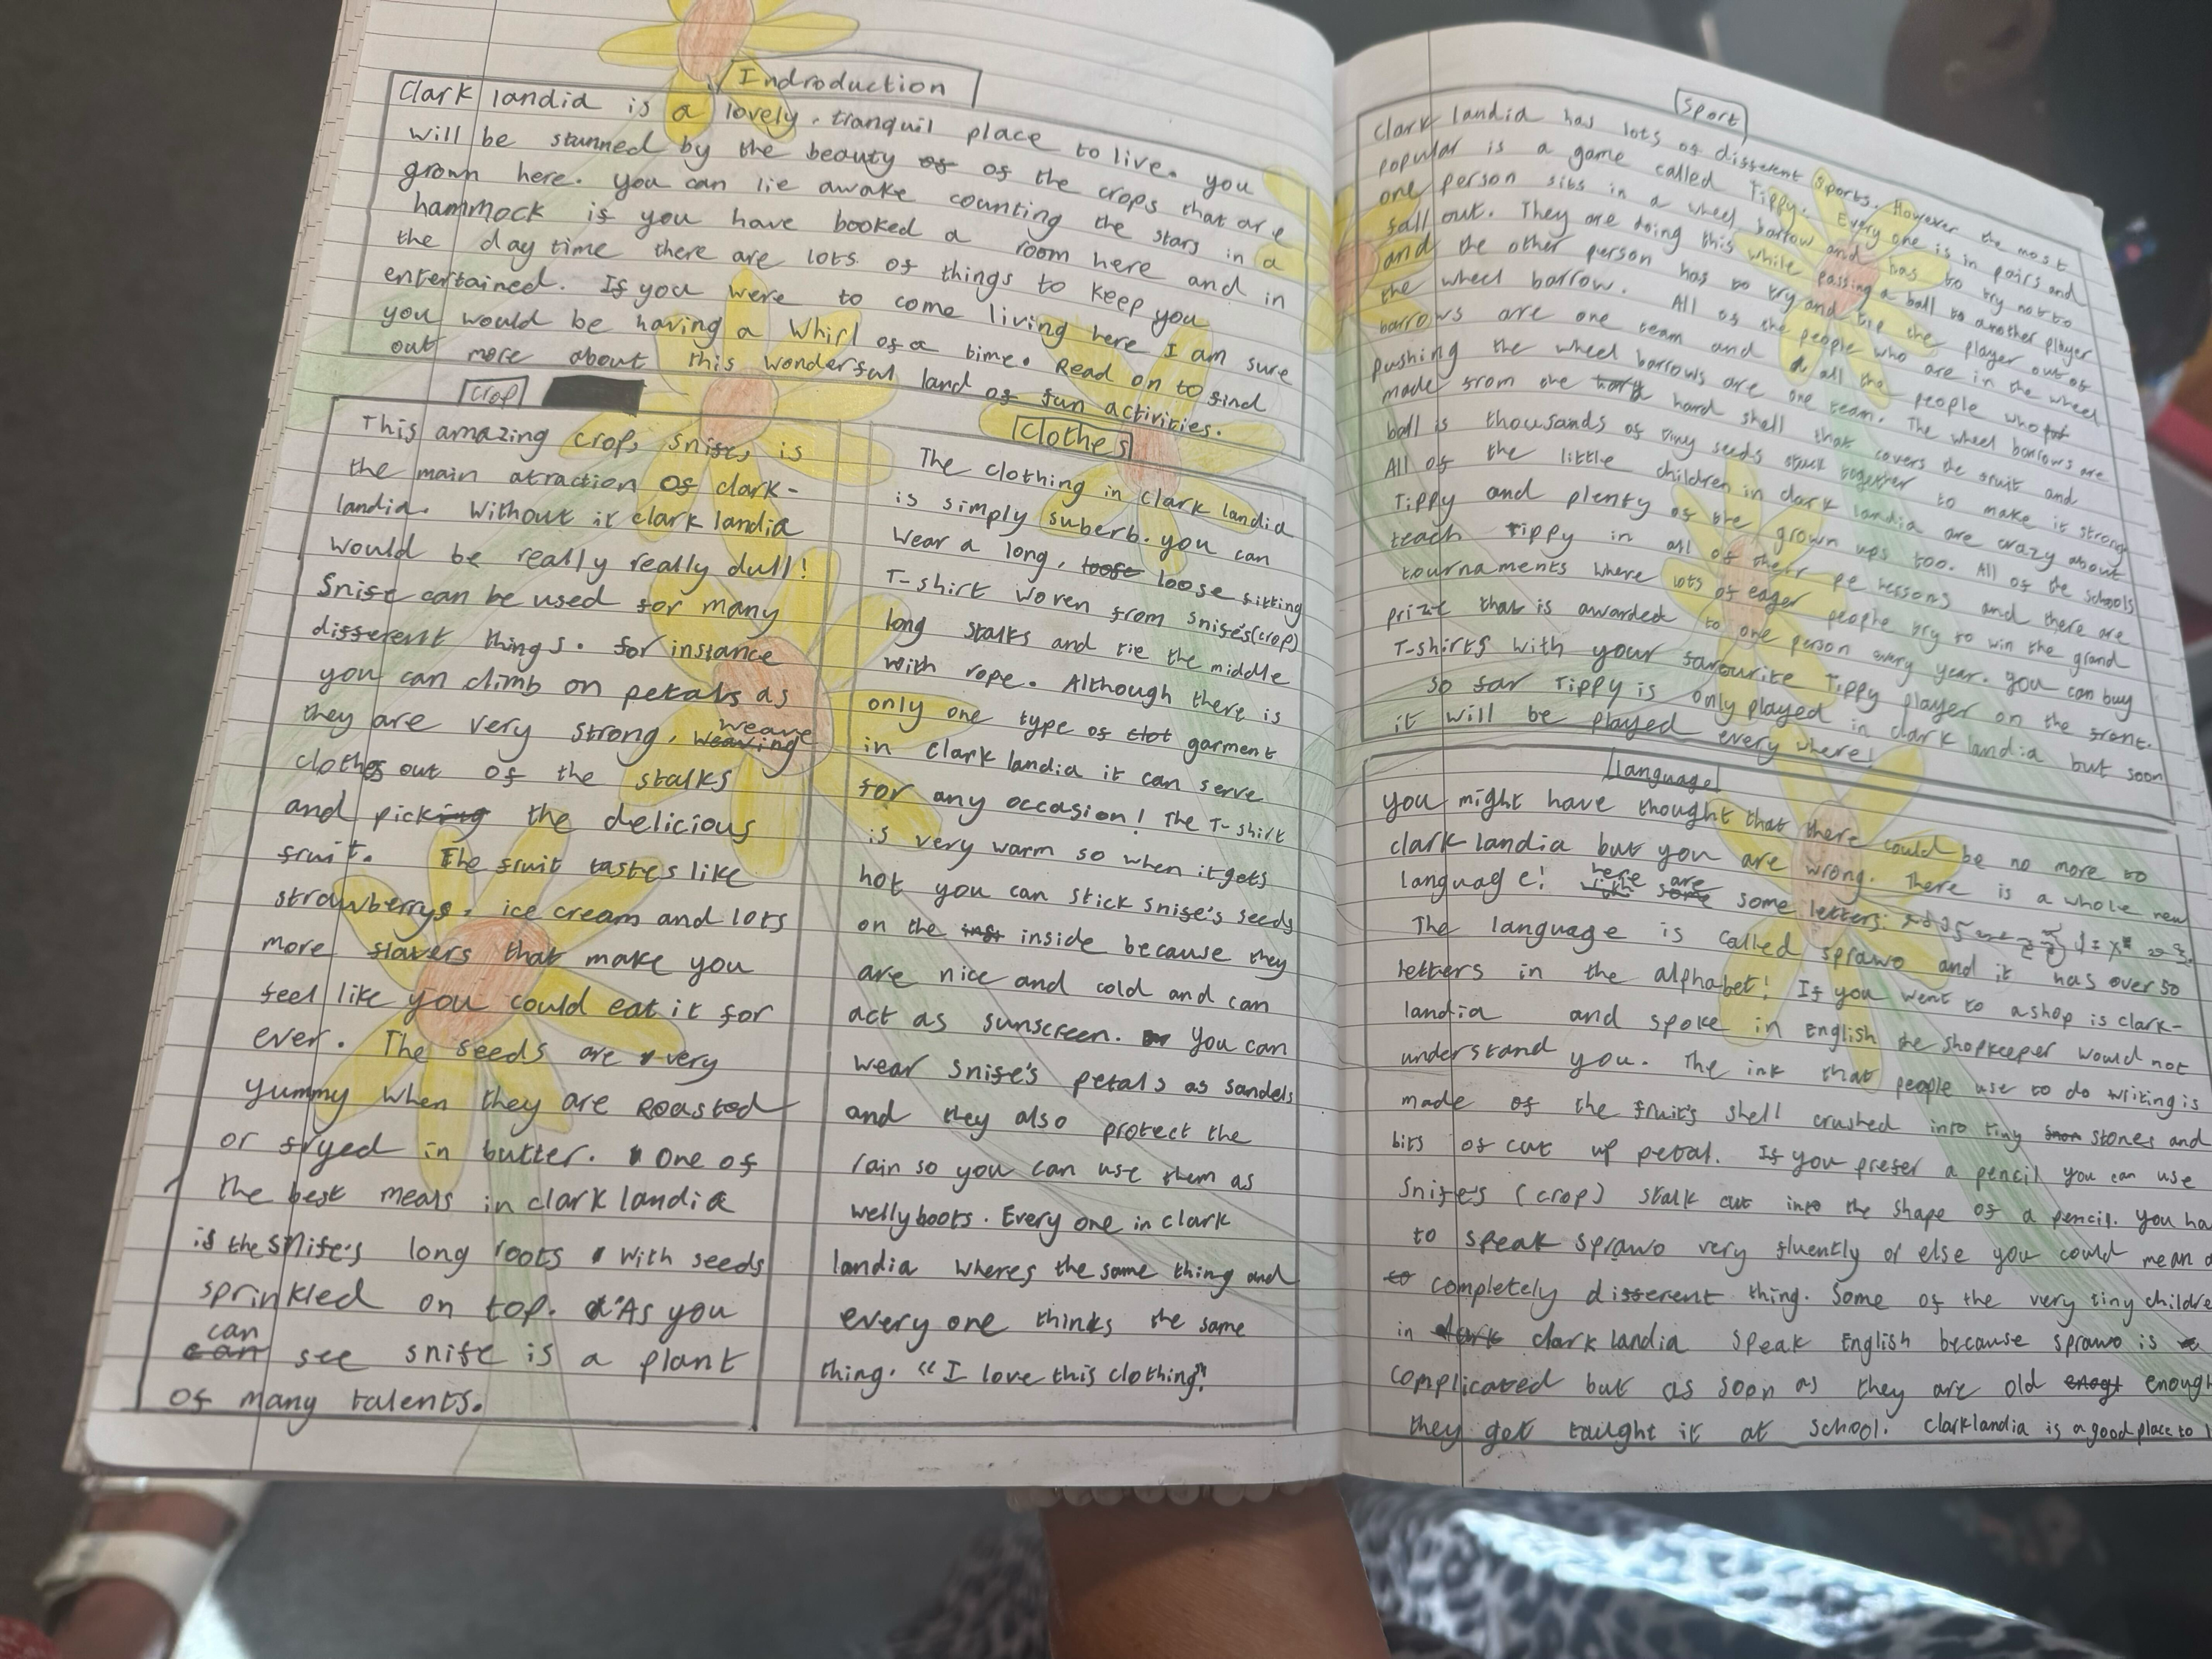 Indroduction
Clark landia is a lovely, tranquil place to live. you
will be stunned by the beauty of of the crops that are
grown here. you can lie awake counting the stars in a
hammock if you have booked a room here and in
the day time there are lots of things to keep you
entertained. If you were to come living here I am sure
you would be having a Whirl of a time. Read on to find
out more about this wonderful land of fun activities.
Crop
This amazing crop, snife, is
the main atraction of clark-
landia. Without it clark landia
would be really really dull!
Snife can be used for many
different things. for instance
you can climb on petals as
they are very strong, weaving weave
clothes out of the stalks
and picking the delicious
fruit. The fruit tastes like
strawberrys, ice cream and lots
more flavers that make you
feel like you could eat it for
ever. The seeds are very
yummy when they are Roasted
or fryed in butter. One of
the best meals in clark landia
is the snife's long roots with seeds
sprinkled on top. As you
can can see snife is a plant
of many talents.
Clothes
The clothing in Clark landia
is simply suberb. you can
wear a long, loose loose fitting
T-shirt woven from snife's (crop)
long stalks and tie the middle
with rope. Although there is
only one type of clot garment
in clark landia it can serve
for any occasion! The T-shirt
is very warm so when it gets
hot you can stick snife's seeds
on the inside because they
are nice and cold and can
act as sunscreen. You can
wear snife's petals as sandels
and they also protect the
rain so you can use them as
wellyboots. Every one in clark
landia wheres the same thing and
every one thinks the same
thing. "I love this clothing".
Sport
Clark landia has lots of different sports. However the most
popular is a game called Tippy. Every one is in pairs and
one person sits in a wheel barrow and has to try not to
fall out. They are doing this while passing a ball to another player
and the other person has to try and tip the player out of
the wheel barrow. All of the people who are in the wheel
barrows are one team and all the people who
pushing the wheel barrows are one team. The wheel barrows are
made from one hard shell that covers the fruit and
ball is thousands of tiny seeds stuck together to make it strong
All of the little children in clark landia are crazy about
Tippy and plenty of the grown ups too. All of the schools
teach Tippy in all of their pe lessons and there are
tournaments where lots of eager people try to win the grand
prize that is awarded to one person every year. you can buy
T-shirts with your favourite Tippy player on the front.
so far Tippy is only played in clark landia but soon
it will be played every where!
language
you might have thought that there could be no more to
clark landia but you are wrong. There is a whole new
language! here are some some letters:
The language is called sprawo and it has over 50
letters in the alphabet! If you went to a shop is clark-
landia and spoke in English the shopkeeper would not
understand you. The ink that people use to do writing is
made of the fruit's shell crushed into tiny stones and
bits of cut up petal. If you prefer a pencil you can use
Snife's (crop) stalk cut into the shape of a pencil. you ha
to speak sprawo very fluently or else you could mean a
to completely different thing. Some of the very tiny childre
in clark clark landia speak English because sprawo is
complicated but as soon as they are old enogt enough
they get taught it at school. Clarklandia is a good place to l